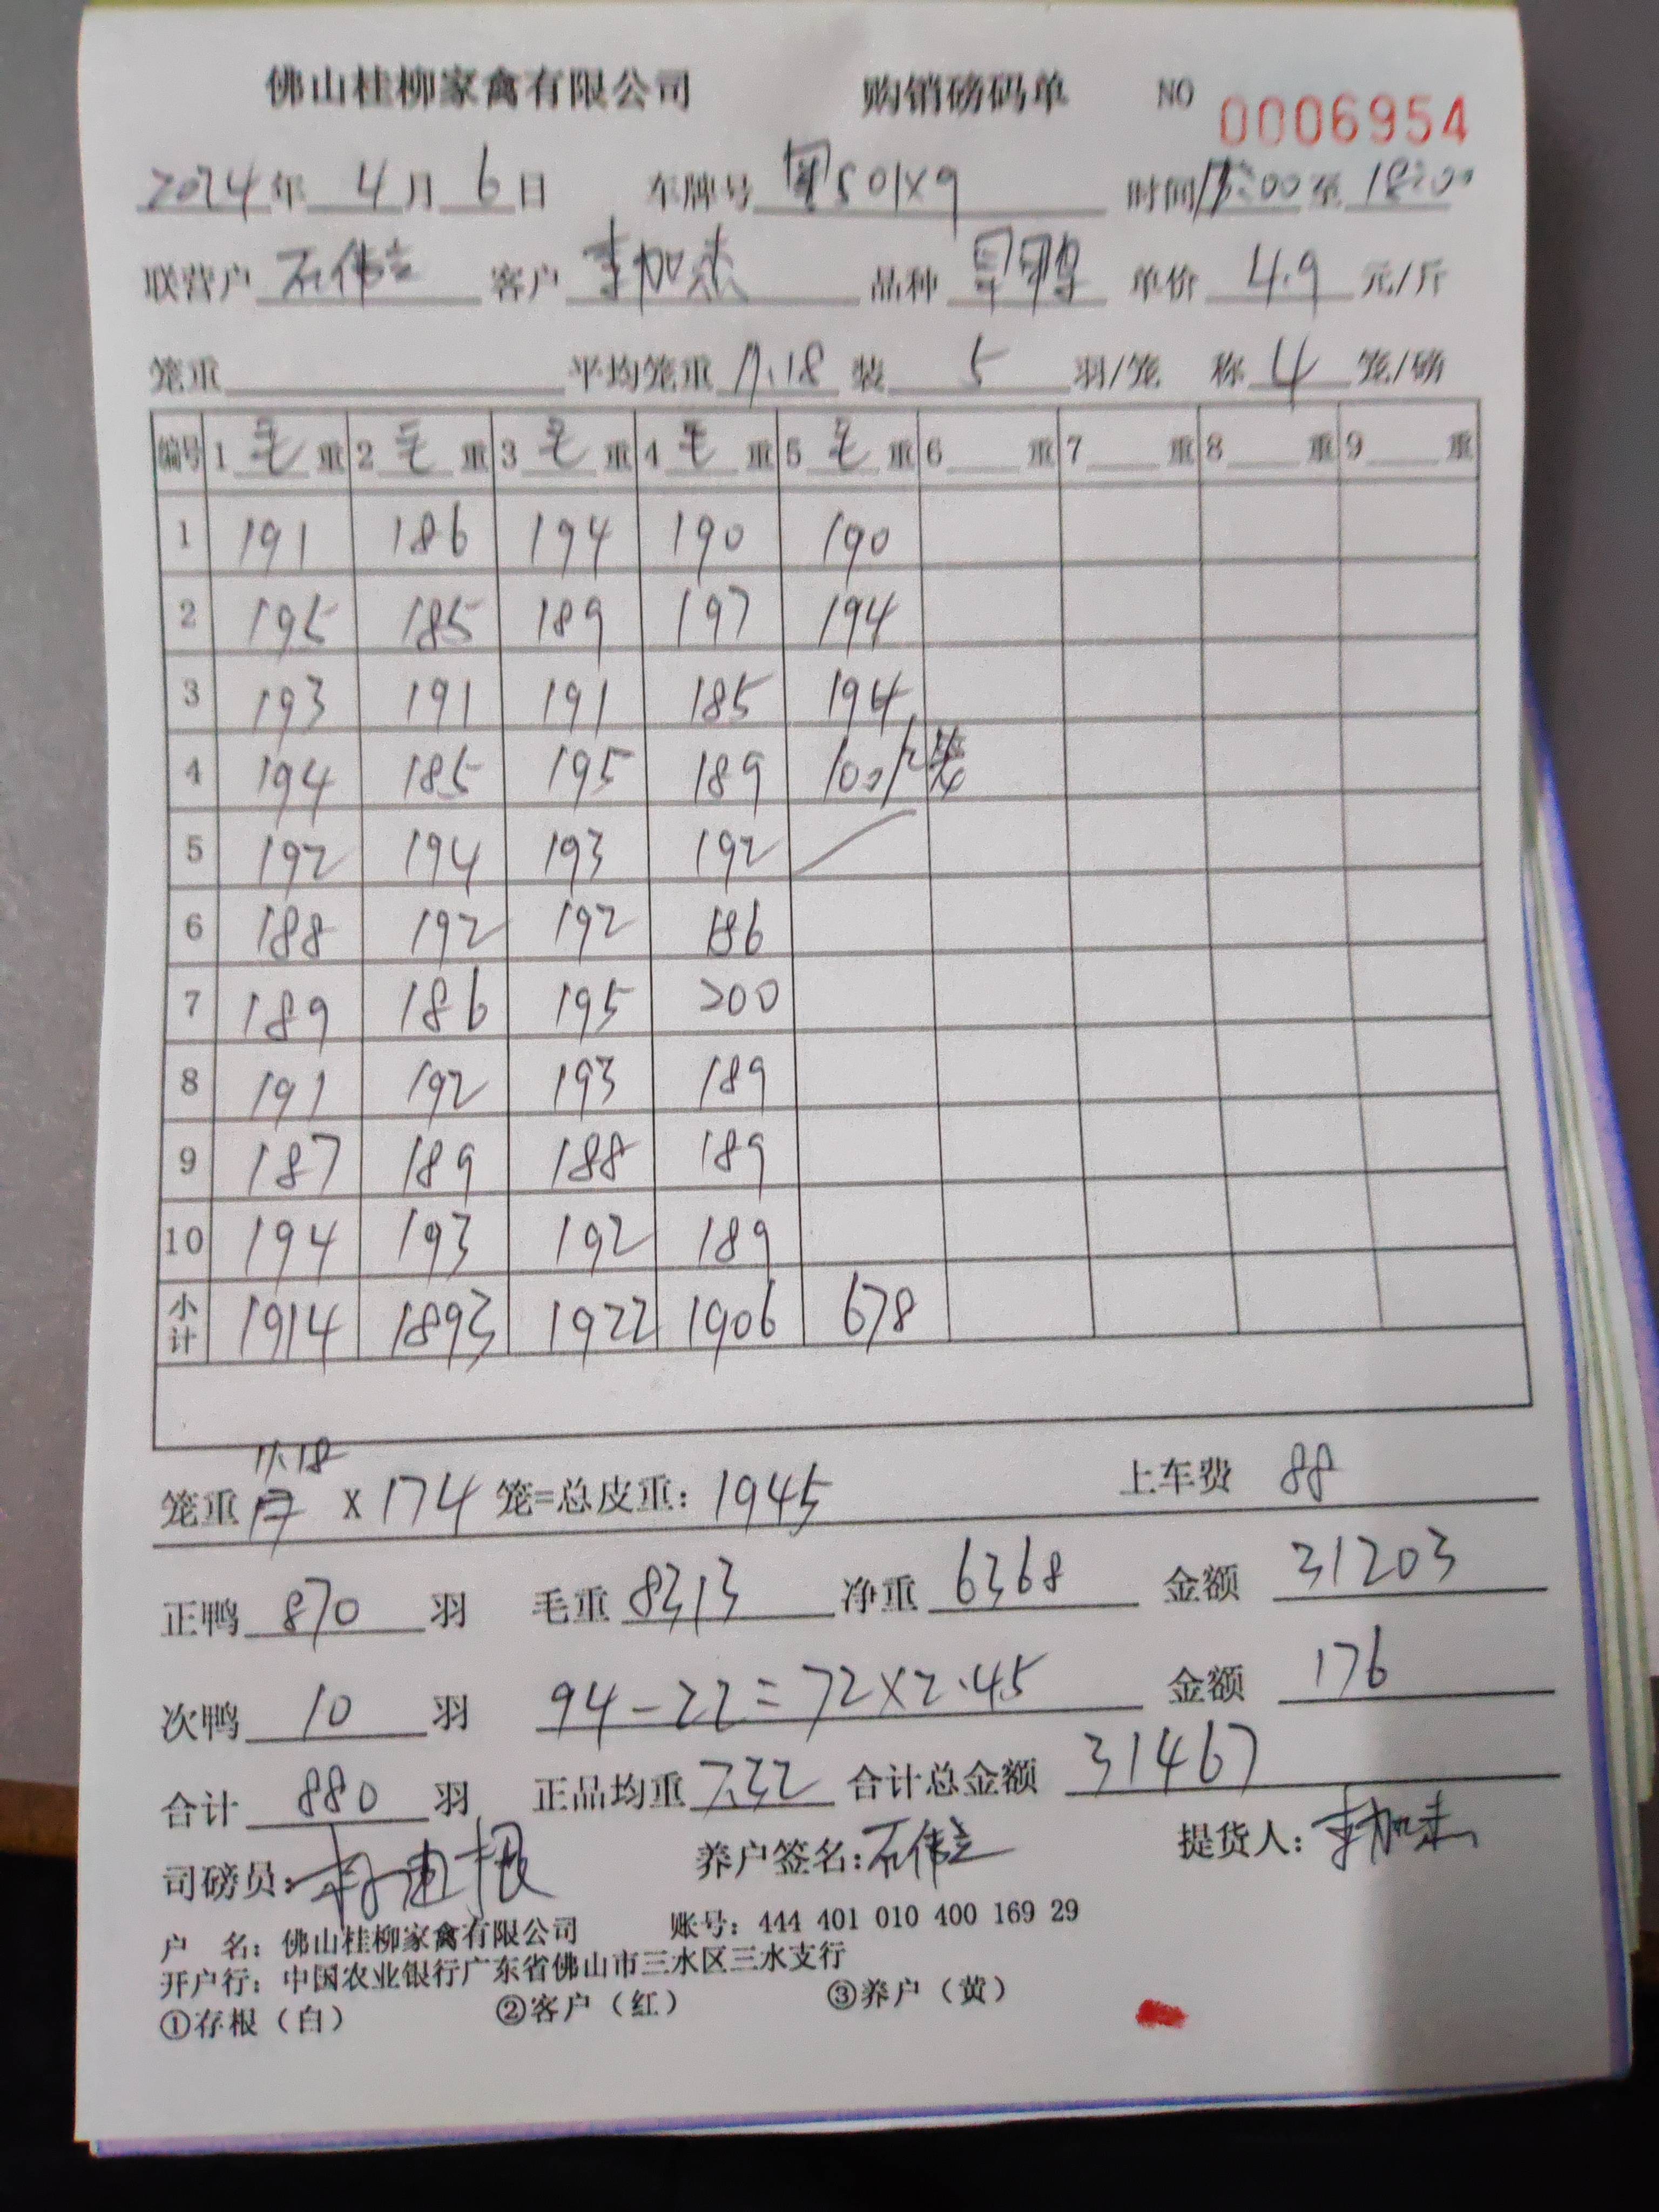 佛山桂柳家禽有限公司 购销磅码单 NO 0006954
2024年 4月 6日 车牌号 粤S01X9 时间 15:00 至 18:00
联营户 石伟立 客户 李加杰 品种 旱鸭 单价 4.9 元/斤
笼重 平均笼重 11.18 装 5 羽/笼 称 4 笼/磅
编号 1 毛 重 2 毛 重 3 毛 重 4 毛 重 5 毛 重 6 重 7 重 8 重 9 重
1 191 186 194 190 190
2 195 185 189 197 194
3 193 191 191 185 194
4 194 185 195 189 100/2笼
5 192 194 193 192
6 188 192 192 186
7 189 186 195 200
8 191 192 193 189
9 187 189 188 189
10 194 193 192 189
小计 1914 1893 1922 1906 678
笼重 11.18 X 174 笼=总皮重: 1945 上车费 88
正鸭 870 羽 毛重 8313 净重 6368 金额 31203
次鸭 10 羽 94-22=72×2.45 金额 176
合计 880 羽 正品均重 7.32 合计总金额 31467
司磅员: 养户签名: 石伟立 提货人: 李加杰
户 名: 佛山桂柳家禽有限公司 账号: 444 401 010 400 169 29
开户行: 中国农业银行广东省佛山市三水区三水支行
①存根（白） ②客户（红） ③养户（黄）